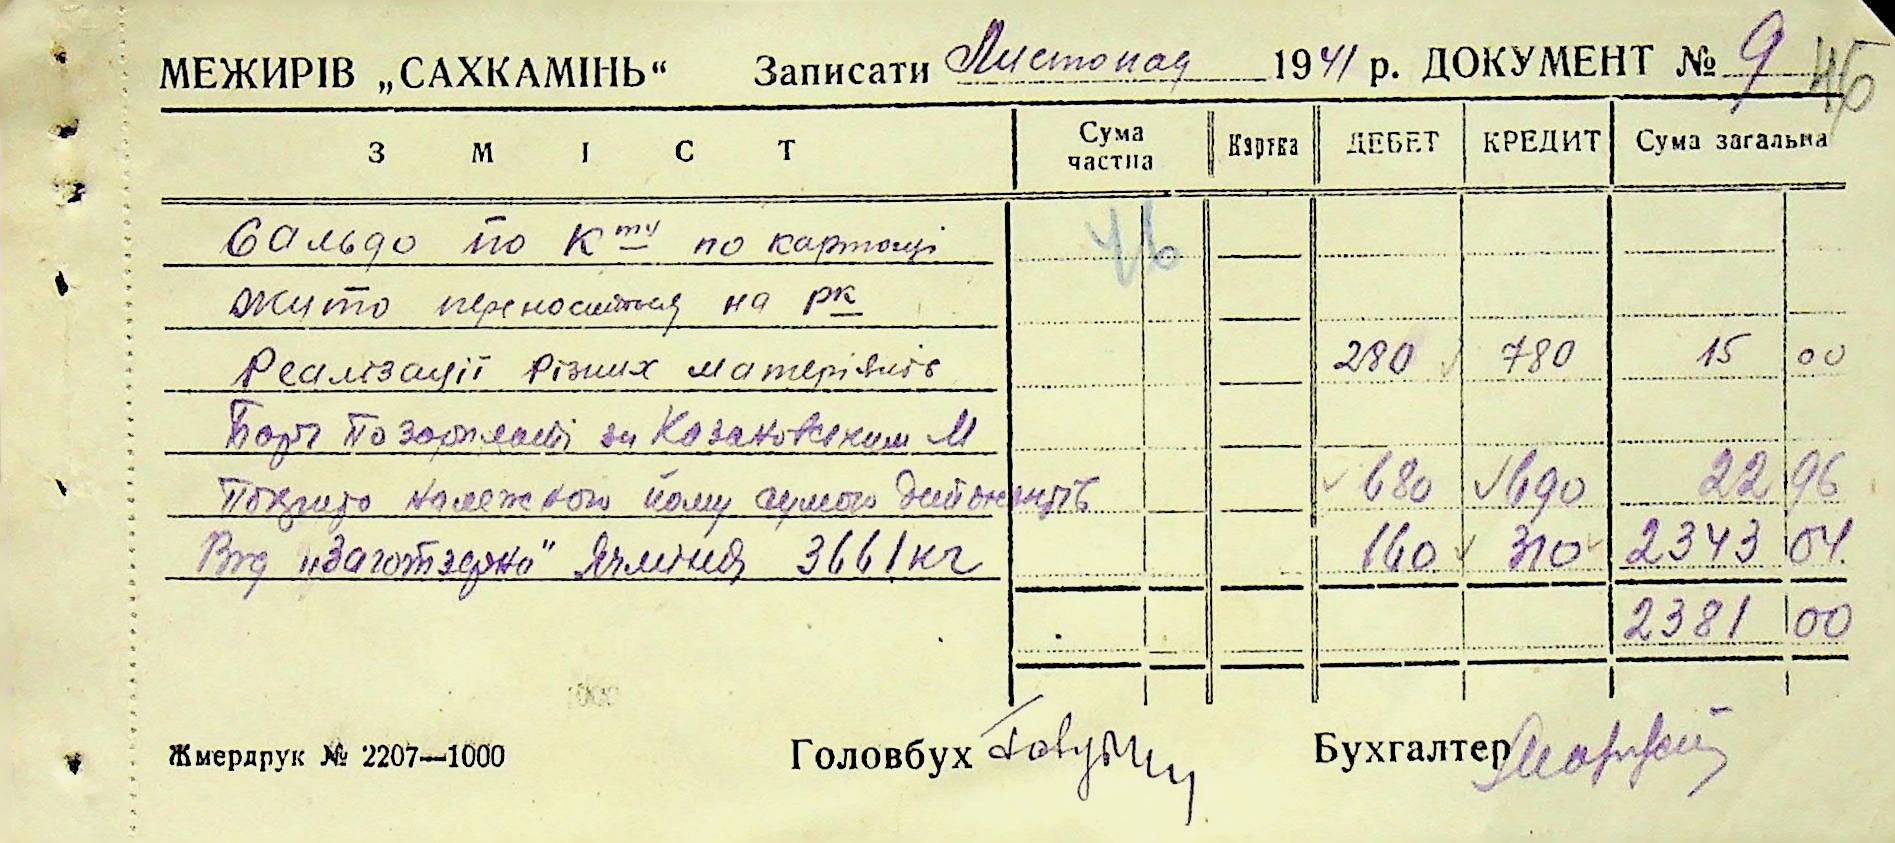 МЕЖИРІВ „САХКАМІНЬ“ Записати Листопад 1941 р. ДОКУМЕНТ № 9 46
ЗМІСТ Сума частна Картка ДЕБЕТ КРЕДИТ Сума загальна
Сальдо по Кту по картоці 46
жито переноситься на рк
Реалізації різних матеріялів 280 780 15 00
Борг по зарплаті за Казановським М
Покрито належною йому сумою депонентів 680 690 22 96
Від „Заготзерно" Ячміня 3661 кг 160 310 2343 04
2381 00
Жмердрук № 2207—1000 Головбух Бухгалтер